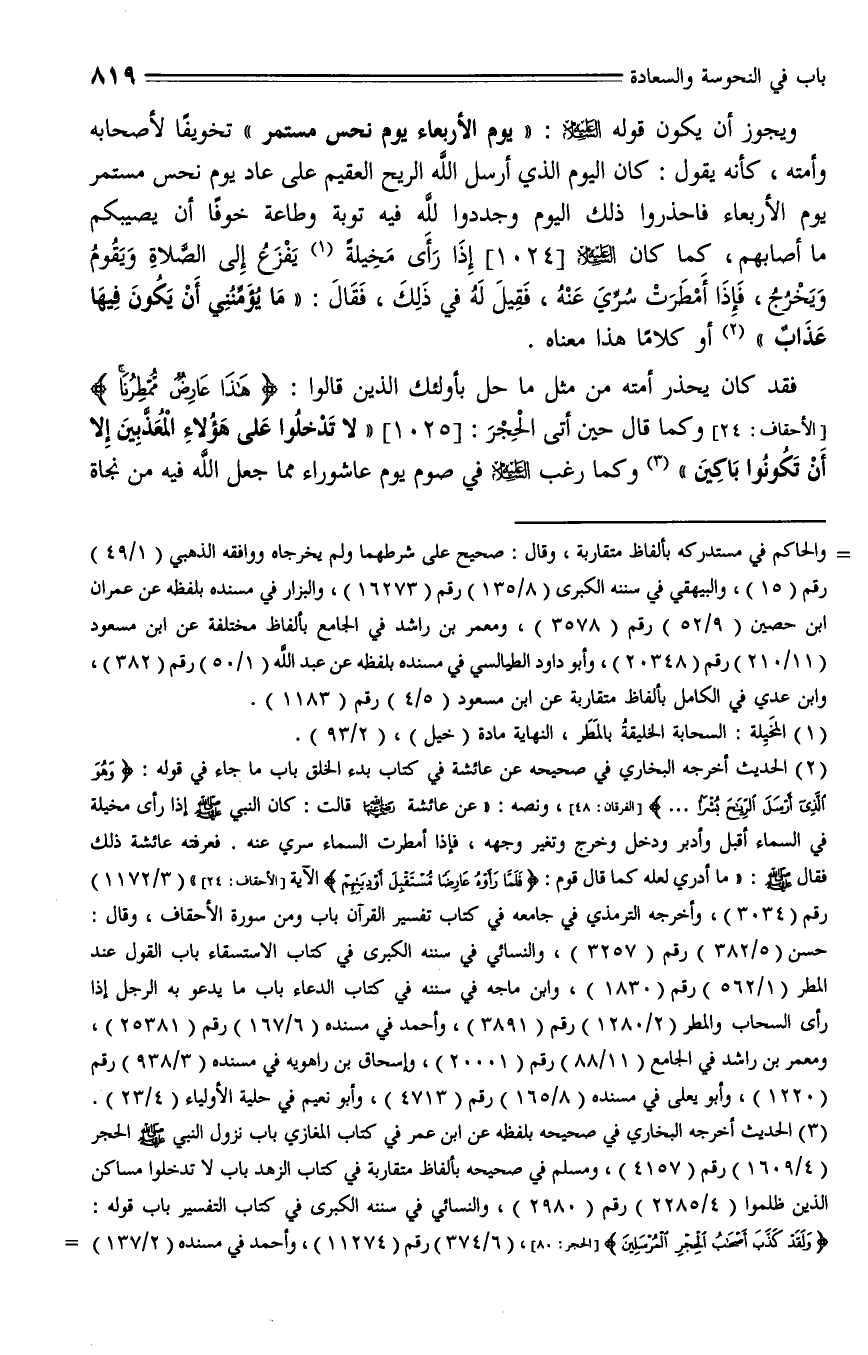 باب في النحوسة والسعادة ٨١٩
ويجوز أن يكون قوله عليه السلام : « يوم الأربعاء يوم نحس مستمر » تخويفًا لأصحابه
وأمته ، كأنه يقول : كان اليوم الذي أرسل اللَّه الريح العقيم على عاد يوم نحس مستمر
يوم الأربعاء فاحذروا ذلك اليوم وجددوا للَّه فيه توبة وطاعة خوفًا أن يصيبكم
ما أصابهم، كما كان عليه السلام [١٠٢٤] إِذَا رَأَى مَخِيلَةً (١) يَفْزَعُ إلى الصَّلاةِ وَيَقُومُ
وَيَخْرُجُ ، فَإِذَا أَمْطَرَتْ سُرِّيَ عَنْهُ ، فَقِيلَ لَهُ في ذَلِكَ ، فَقَالَ : « مَا يُؤَمِّنُنِي أَنْ يَكُونَ فِيهَا
عَذَابٌ » (٢) أو كلامًا هذا معناه .
فقد كان يحذر أمته من مثل ما حل بأولئك الذين قالوا : ﴿ هَٰذَا عَارِضٌ مُّمْطِرُنَا ۚ ﴾
[الأحقاف: ٢٤] وكما قال حين أتى الحِجْرَ : [١٠٢٥] « لا تَدْخلُوا عَلى هَؤُلاءِ الْمُعَذَّبِينَ إلا
أَنْ تَكُونُوا بَاكِينَ » (٣) وكما رغب عليه السلام في صوم يوم عاشوراء مما جعل اللَّه فيه من نجاة
= والحاكم في مستدركه بألفاظ متقاربة ، وقال : صحيح على شرطهما ولم يخرجاه ووافقه الذهبي ( ٤٩/١ )
رقم ( ١٥ ) ، والبيهقي في سننه الكبرى ( ١٣٥/٨ ) رقم ( ١٦٢٧٣ ) ، والبزار في مسنده بلفظه عن عمران
ابن حصين ( ٥٢/٩ ) رقم ( ٣٥٧٨ ) ، ومعمر بن راشد في الجامع بألفاظ مختلفة عن ابن مسعود
( ٢١٠/١١ ) رقم ( ٢٠٣٤٨ ) ، وأبو داود الطيالسي في مسنده بلفظه عن عبد اللَّه ( ٥٠/١ ) رقم ( ٣٨٢ ) ،
وابن عدي في الكامل بألفاظ متقاربة عن ابن مسعود ( ٤/٥ ) رقم ( ١١٨٣ ) .
(١) المَخِيلة : السحابة الخليقةُ بالمَطَر ، النهاية مادة ( خيل ) ، ( ٩٣/٢ ) .
(٢) الحديث أخرجه البخاري في صحيحه عن عائشة في كتاب بدء الخلق باب ما جاء في قوله : ﴿ وَهُوَ
ٱلَّذِىٓ أَرْسَلَ ٱلرِّيَٰحَ بُشْرًۢا ... ﴾ [الفرقان: ٤٨] ، ونصه : « عن عائشة رضي الله عنها قالت : كان النبي ﷺ إذا رأى مخيلة
في السماء أقبل وأدبر ودخل وخرج وتغير وجهه ، فإذا أمطرت السماء سري عنه . فعرفته عائشة ذلك
فقال ﷺ : « ما أدري لعله كما قال قوم : ﴿ فَلَمَّا رَأَوْهُ عَارِضًا مُّسْتَقْبِلَ أَوْدِيَتِهِمْ ﴾ الآية [الأحقاف: ٢٤] » ( ١١٧٢/٣ )
رقم ( ٣٠٣٤ ) ، وأخرجه الترمذي في جامعه في كتاب تفسير القرآن باب ومن سورة الأحقاف ، وقال :
حسن ( ٣٨٢/٥ ) رقم ( ٣٢٥٧ ) ، والنسائي في سننه الكبرى في كتاب الاستسقاء باب القول عند
المطر ( ٥٦٢/١ ) رقم ( ١٨٣٠ ) ، وابن ماجه في سننه في كتاب الدعاء باب ما يدعو به الرجل إذا
رأى السحاب والمطر ( ١٢٨٠/٢ ) رقم ( ٣٨٩١ ) ، وأحمد في مسنده ( ١٦٧/٦ ) رقم ( ٢٥٣٨١ ) ،
ومعمر بن راشد في الجامع ( ٨٨/١١ ) رقم ( ٢٠٠٠١ ) ، وإسحاق بن راهويه في مسنده ( ٩٣٨/٣ ) رقم
( ١٢٢٠ ) ، وأبو يعلى في مسنده ( ١٦٥/٨ ) رقم ( ٤٧١٣ ) ، وأبو نعيم في حلية الأولياء ( ٢٣/٤ ) .
(٣) الحديث أخرجه البخاري في صحيحه بلفظه عن ابن عمر في كتاب المغازي باب نزول النبي ﷺ الحجر
( ١٦٠٩/٤ ) رقم ( ٤١٥٧ ) ، ومسلم في صحيحه بألفاظ متقاربة في كتاب الزهد باب لا تدخلوا مساكن
الذين ظلموا ( ٢٢٨٥/٤ ) رقم ( ٢٩٨٠ ) ، والنسائي في سننه الكبرى في كتاب التفسير باب قوله :
﴿ وَلَقَدْ كَذَّبَ أَصْحَٰبُ ٱلْحِجْرِ ٱلْمُرْسَلِينَ ﴾ [الحجر: ٨٠] ، ( ٣٧٤/٦ ) رقم ( ١١٢٧٤ ) ، وأحمد في مسنده ( ١٣٧/٢ ) =